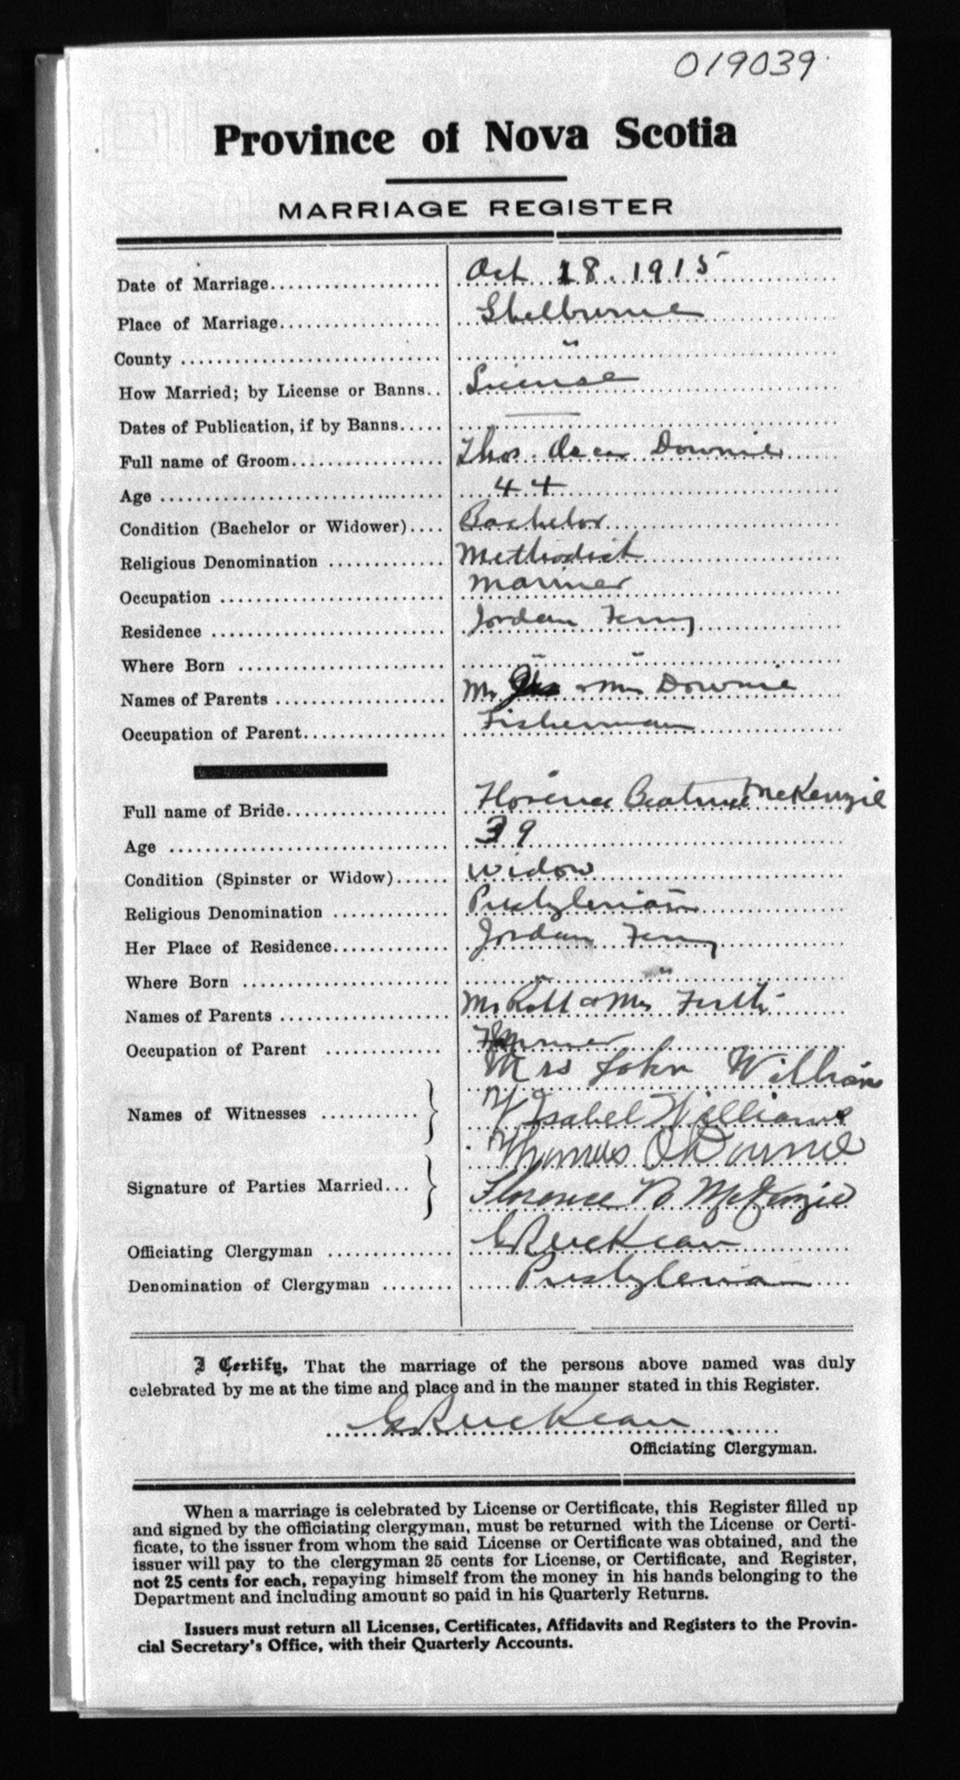 019039
Province of Nova Scotia
MARRIAGE REGISTER
Date of Marriage Oct 18. 1915
Place of Marriage Shelburne
County "
How Married; by License or Banns License
Dates of Publication, if by Banns —
Full name of Groom Thos. Oscar Downie
Age 44
Condition (Bachelor or Widower) Bachelor
Religious Denomination Methodist
Occupation Mariner
Residence Jordan Ferry
Where Born " "
Names of Parents Mr & Mrs Downie
Occupation of Parent Fisherman
Full name of Bride Florence Beatrice McKenzie
Age 39
Condition (Spinster or Widow) Widow
Religious Denomination Presbyterian
Her Place of Residence Jordan Ferry
Where Born " "
Names of Parents Mr Robt & Mrs
Occupation of Parent
Names of Witnesses } Mrs John Williams
Isabel Williams
Signature of Parties Married } Thomas O Downie
Florence B McKenzie
Officiating Clergyman
Denomination of Clergyman Presbyterian
I Certify, That the marriage of the persons above named was duly
celebrated by me at the time and place and in the manner stated in this Register.
Officiating Clergyman.
When a marriage is celebrated by License or Certificate, this Register filled up
and signed by the officiating clergyman, must be returned with the License or Certi-
ficate, to the issuer from whom the said License or Certificate was obtained, and the
issuer will pay to the clergyman 25 cents for License, or Certificate, and Register,
not 25 cents for each, repaying himself from the money in his hands belonging to the
Department and including amount so paid in his Quarterly Returns.
Issuers must return all Licenses, Certificates, Affidavits and Registers to the Provin-
cial Secretary's Office, with their Quarterly Accounts.